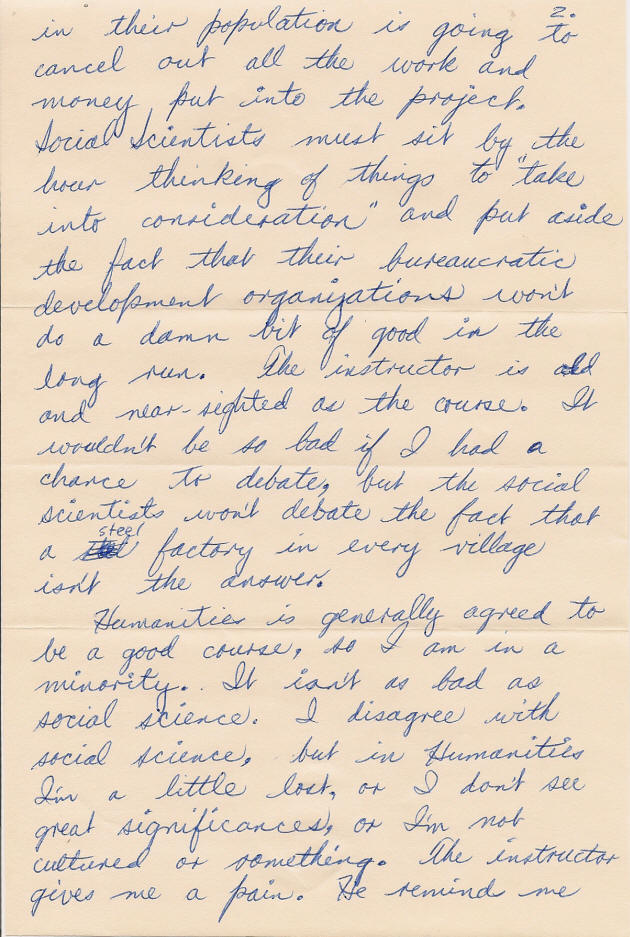 2.
in their population is going to
cancel out all the work and
money put into the project.
Social Scientists must sit by the
hour thinking of things to "take
into consideration" and put aside
the fact that their bureaucratic
development organizations won't
do a damn bit of good in the
long run. The instructor is old
and near-sighted as the course. It
wouldn't be so bad if I had a
chance to debate, but the social
scientists won't debate the fact that
a steel factory in every village
isn't the answer.
Humanities is generally agreed to
be a good course, so I am in a
minority. It isn't as bad as
social science. I disagree with
social science, but in Humanities
I'm a little lost, or I don't see
great significances, or I'm not
cultured or something. The instructor
gives me a pain. He remind me